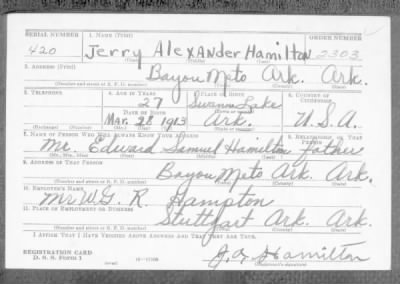 SERIAL NUMBER 1. NAME (Print) ORDER NUMBER
420 Jerry Alexander Hamilton 2303
(First) (Middle) (Last)
2. ADDRESS (Print)
Bayou Meto Ark. Ark.
(Number and street or R. F. D. number) (Town) (County) (State)
3. TELEPHONE 4. AGE IN YEARS 5. PLACE OF BIRTH 6. COUNTRY OF CITIZENSHIP
27 Swann Lake
DATE OF BIRTH (Town or county)
Mar. 28 1913 Ark. U.S.A.
(Exchange) (Number) (Mo.) (Day) (Yr.) (State or country)
7. NAME OF PERSON WHO WILL ALWAYS KNOW YOUR ADDRESS 8. RELATIONSHIP OF THAT PERSON
Mr. Edward Samuel Hamilton father
(Mr., Mrs., Miss) (First) (Middle) (Last)
9. ADDRESS OF THAT PERSON
Bayou Meto Ark. Ark.
(Number and street or R. F. D. number) (Town) (County) (State)
10. EMPLOYER'S NAME
Mr W.G. R. Hampton
11. PLACE OF EMPLOYMENT OR BUSINESS
Stuttfart Ark. Ark.
(Number and street or R. F. D. number) (Town) (County) (State)
I AFFIRM THAT I HAVE VERIFIED ABOVE ANSWERS AND THAT THEY ARE TRUE.
REGISTRATION CARD
D. S. S. FORM 1
J. A. Hamilton
(Registrant's signature)